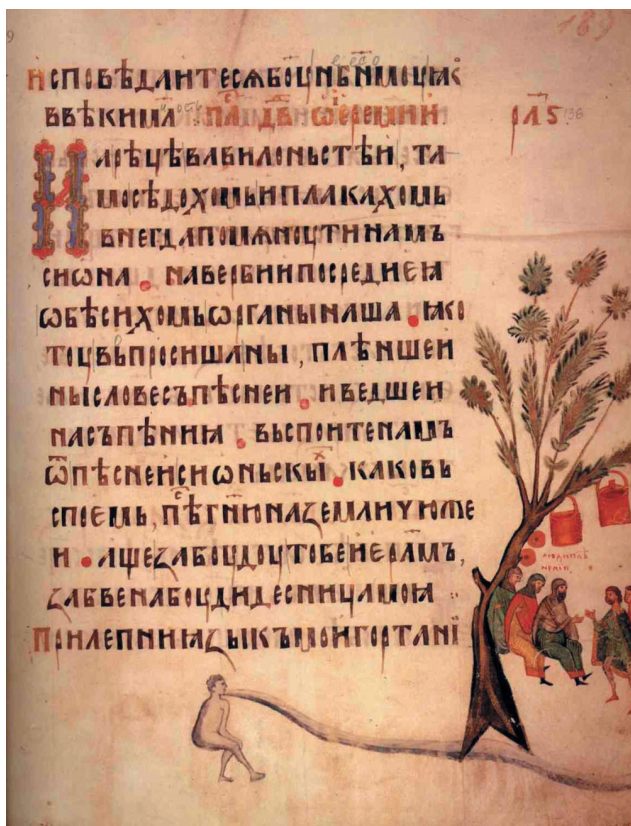 исповѣдаитесѧбоунбⷭ҇номоуꙗ
ввѣкимⷧ҇а пⷭ҇а дв҃ ѡеремии рл҃ѕ
Нарѣцѣвавилоньстѣи, та
мосѣдохомьиплакахомь
внегдапомѧноутинамъ
сиѡна . навербиипосредиеꙗ
ѡбѣсихомьѡрганынаша . ꙗко
тоувъпросишаны, плѣншеи
нысловесъпѣснеи . иведшеи
насъпѣниꙗ . въспоитенамъ
ѿпѣснеисиѡньскыⷯ . каковъ
споемь, пѣⷭ҇гн҃юназемличюже
и . ащезабоудоутобеиерⷭ҇лмъ,
забвенабоудидесницамоꙗ :
Прилепниꙗзыкъмоигортанї
людипⷧ҇ѣ